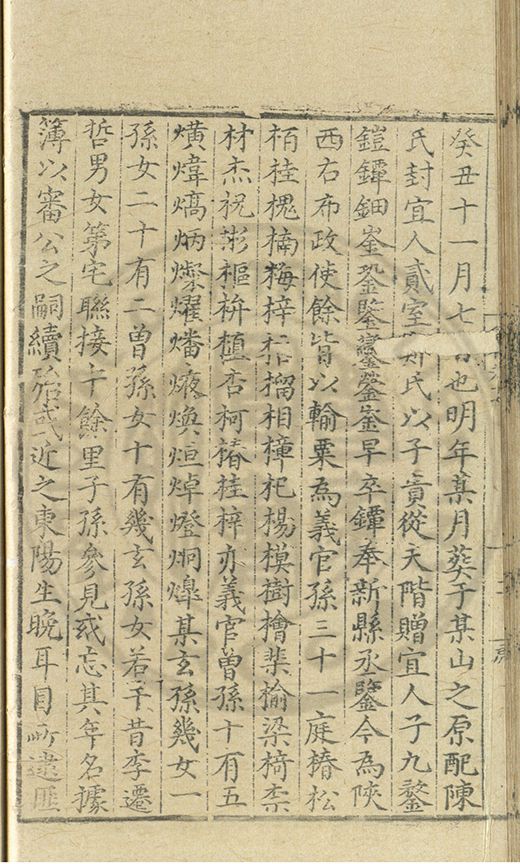 癸丑十一月七日也明年某月葵于某山之原配陳
氏封宜人貳室鄭氏以子貴從夫階贈宜人子九鏊
鎧鐔鈿崟銎鑒鑾鋈崟早卒鐔奉新縣丞鑒今為陝
西右布政使餘皆以輸粟為義官孫三十一庭椿松
栢桂槐楠梅梓榴相橦杞楊模樹檜棐榆梁椅柰
材杰柷彬樞枿植杏柯椿桂梓亦義官曽孫十有五
熿煒熇炳燦耀燔焲煥烜焯燈烔熚某玄孫幾女一
孫女二十有二曽孫女十有幾玄孫女若干昔李遷
哲男女第宅聯接十餘里子孫參見或忘其年名據
簿以審公之嗣續殆或近之東陽生晚耳目所逮匪